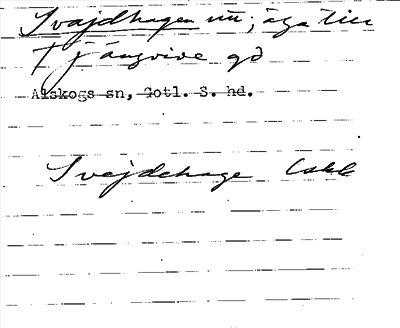 Svajdhagen nu, äga till
Tjängvide gd
Alskogs sn, Gotl. S. hd.
Svejdehage